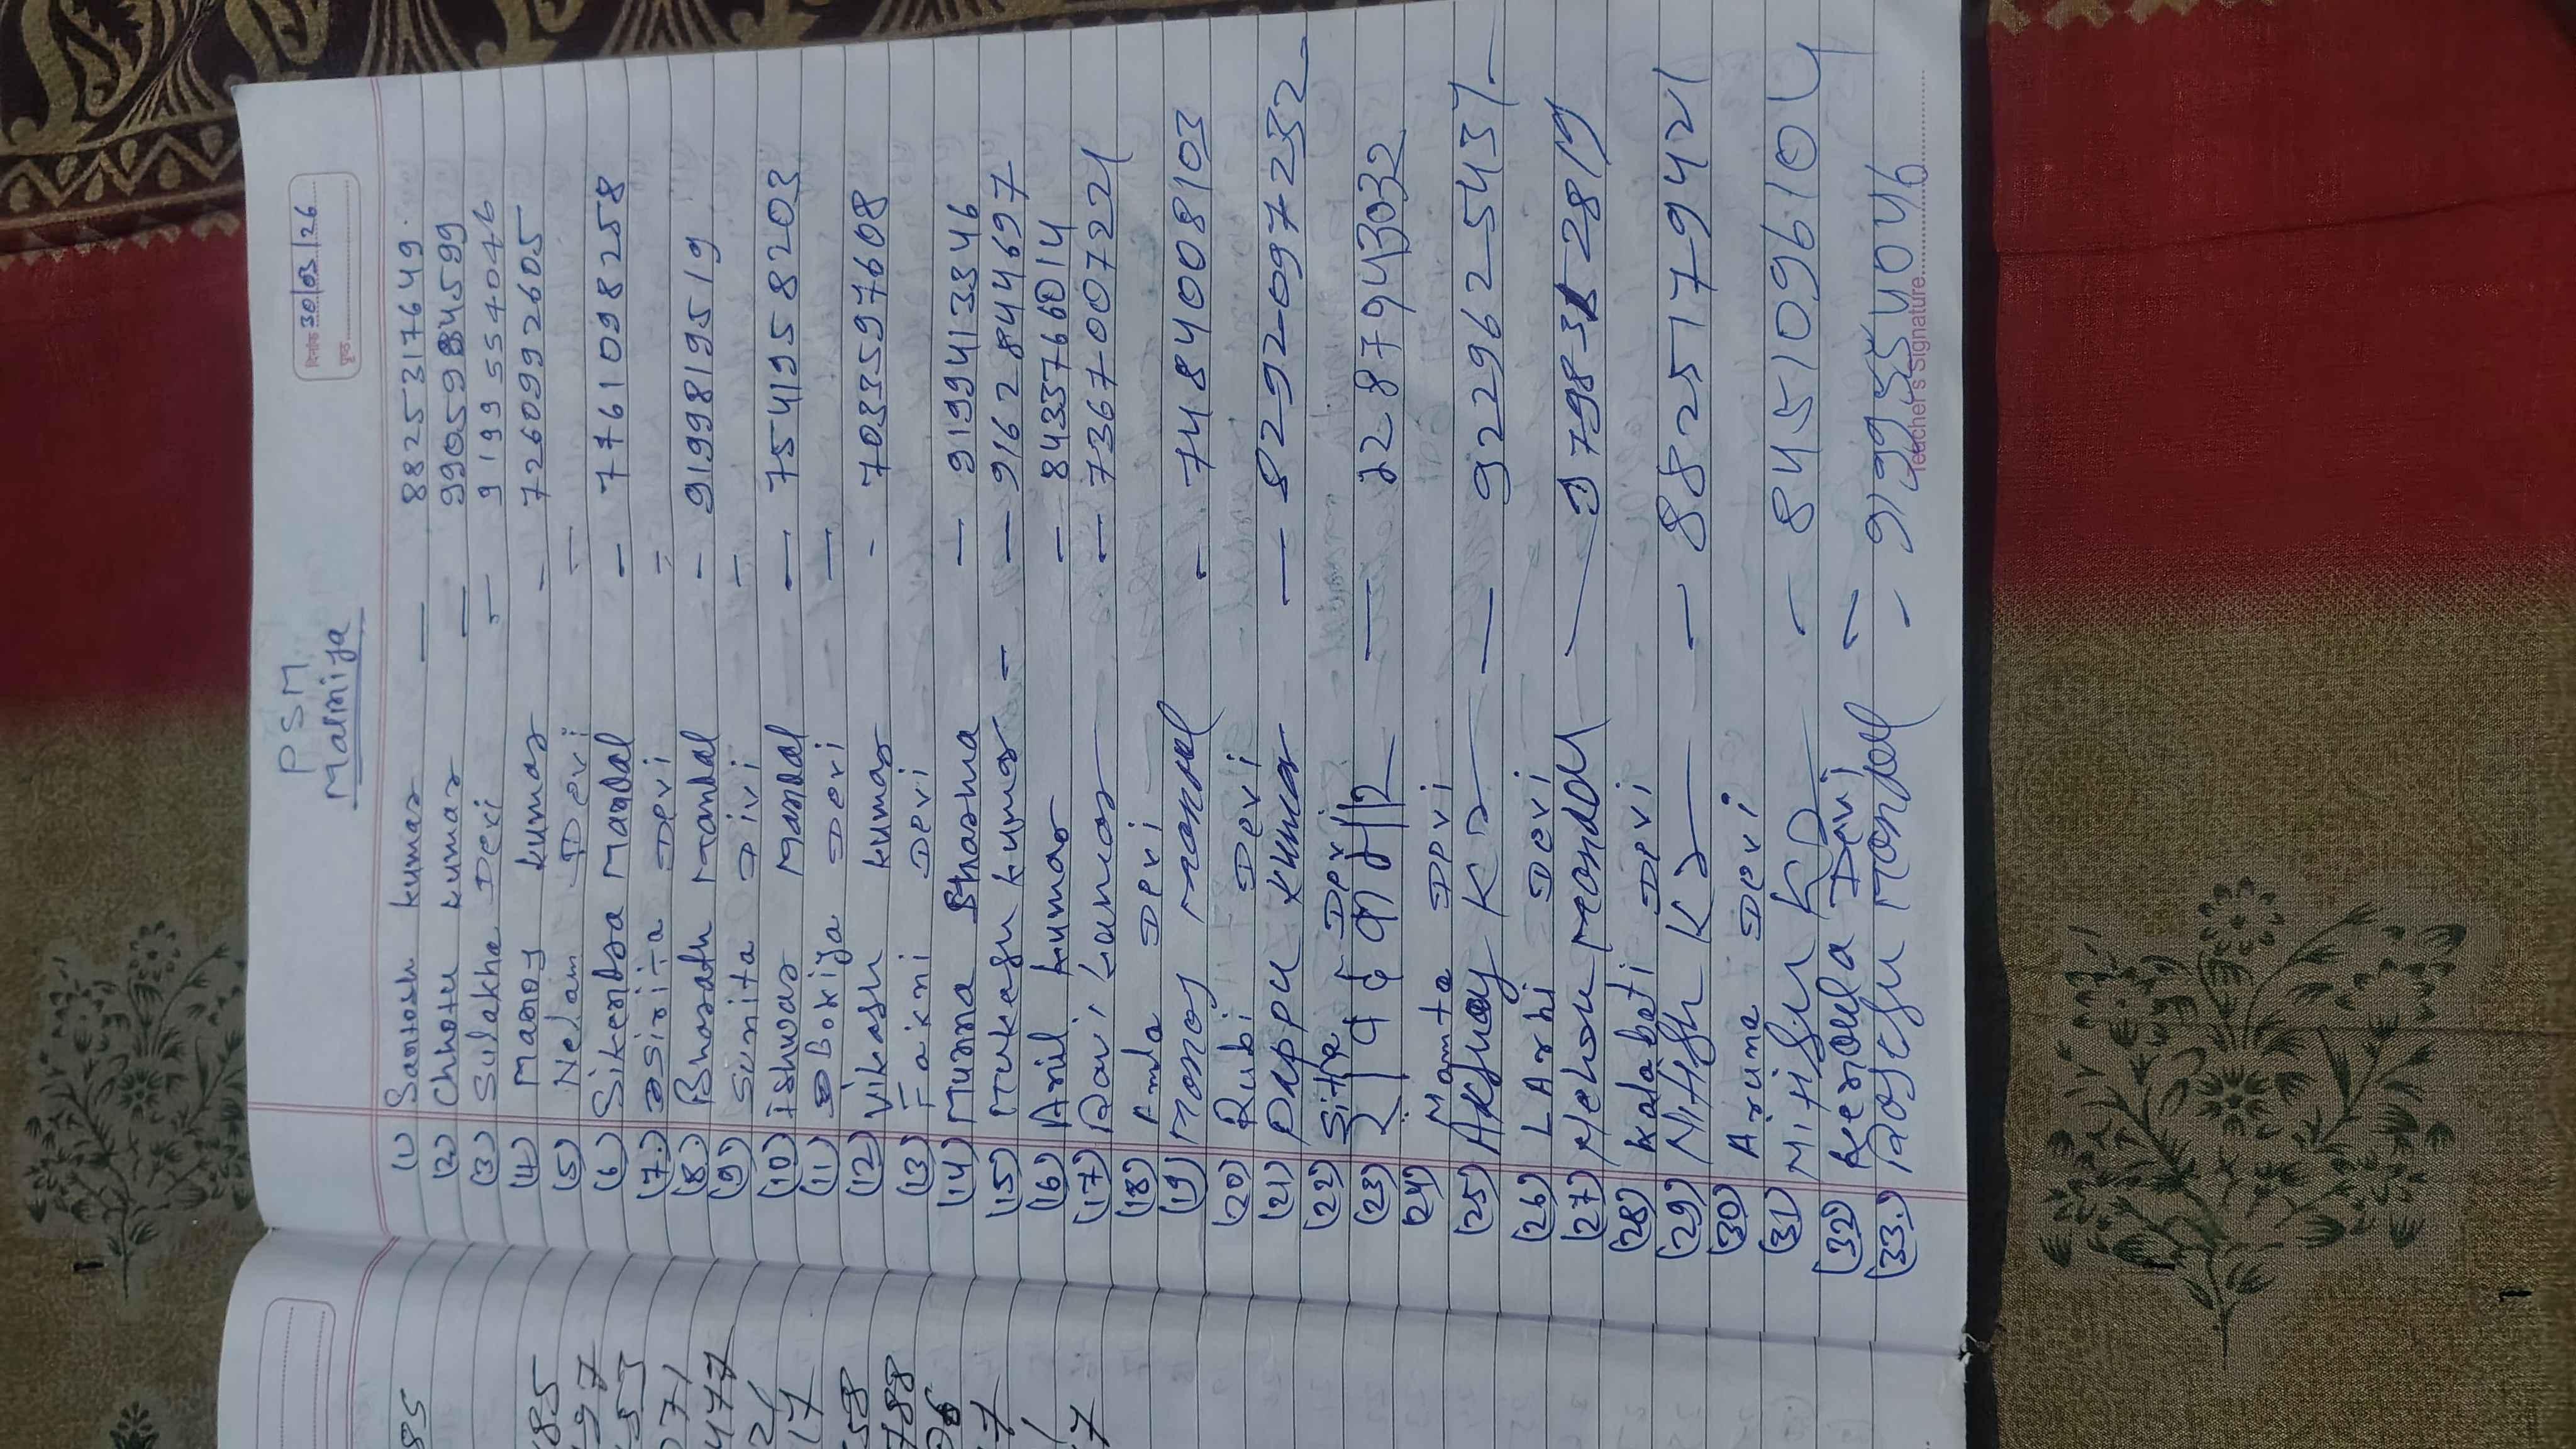 दिनांक 30/03/26
पृष्ठ
PSM
Malmiya
(1) Santosh kumar — 8825317649
(2) Chhotu kumar — 9905984599
(3) Sulakha Devi - 9199554046
(4) Manoj kumar - 7260992605
(5) Nelam Devi -
(6) Sikendra Mandal - 7761098258
(7) Devi -
(8) Bharath Mandal - 9199819519
(9) Sunita Divi -
(10) Ishwar Mandal — 7541958203
(11) Bokiya Devi —
(12) Vikash kumar - 7033597608
(13) Devi
(14) Munna Sharma — 9199413346
(15) Mukesh kumar - — 9162844697
(16) Anil kumar - 8433766014
(17) Ravi kumar — 7367007221
(18) Amla Devi
(19) Monoj Mandal - 7484008103
(20) Rubi Devi
(21) Pappu kumar — 8292097232
(22) Sita Devi
(23) — 2287943032
(24) Mamta Devi
(25) Akshay Kr — 9229625437
(26) Devi
(27) Mandal
(28) Kalabati Devi
(29) Nitish Kr - 8825179421
(30) Aruna Devi
(31) Mitish Kr - 8451096104
(32) Devi -
(33.) Mandal -
Teacher's Signature